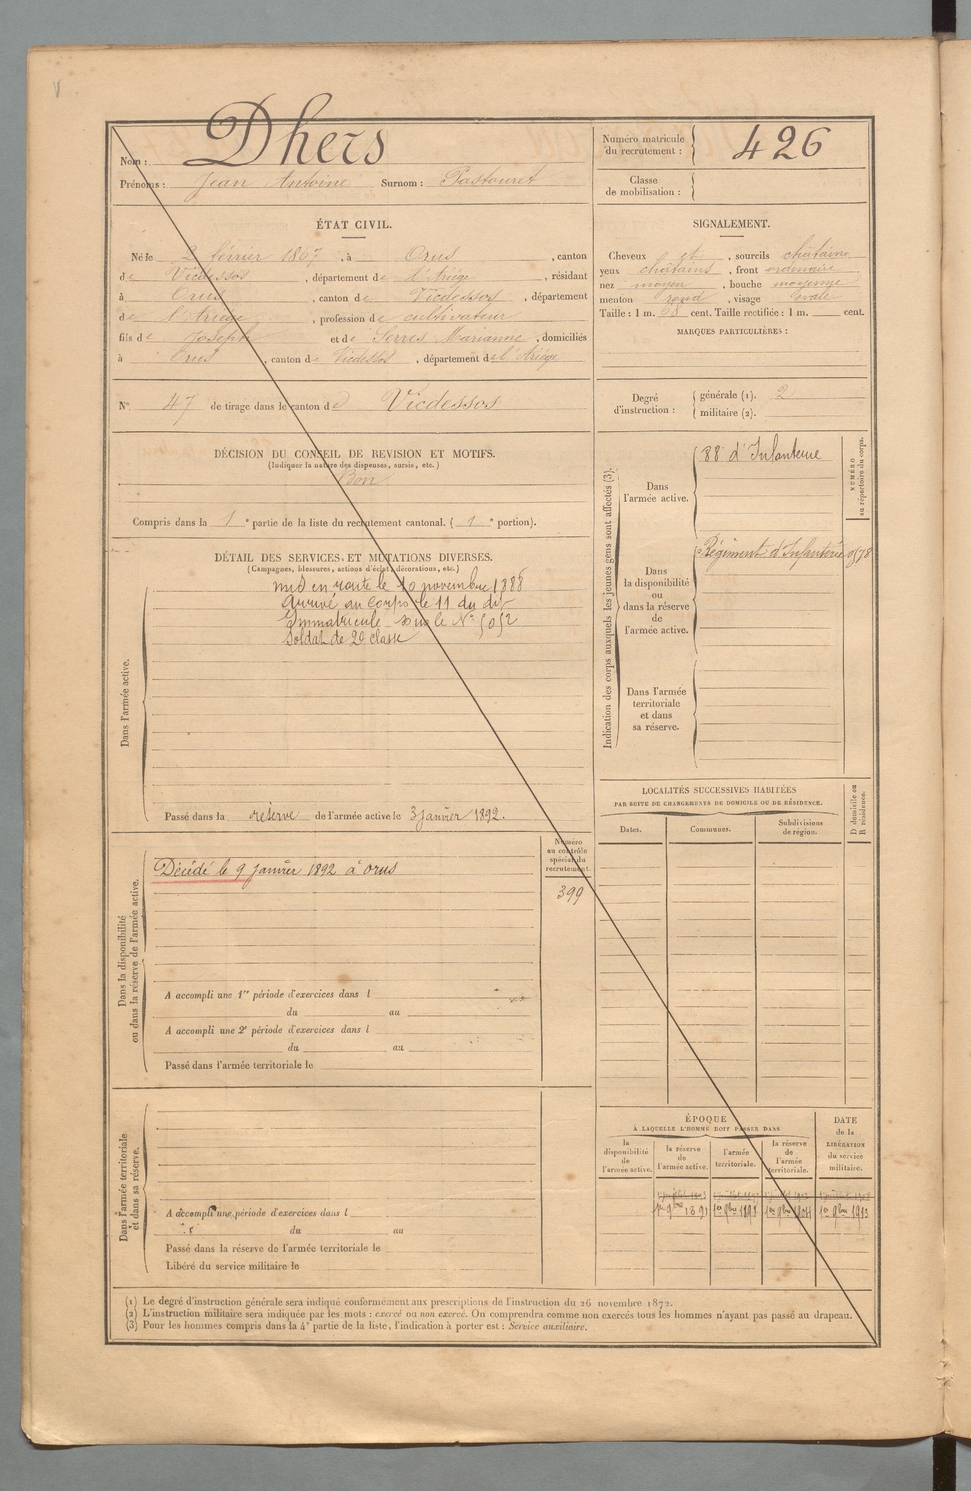 Nom : Dhers
Prénoms : Jean Antoine Surnom : Pastouret
Numéro matricule du recrutement : 426
Classe de mobilisation :
ÉTAT CIVIL.
Né le 2 février 1867, à Orus, canton
de Vicdessos, département de l'Ariége, résidant
à Orus, canton de Vicdessos, département
de l'Ariége, profession de cultivateur
fils de Joseph et de Serres Marianne, domiciliés
à Orus, canton de Vicdessos, département de l'Ariége
SIGNALEMENT.
Cheveux et, sourcils châtains,
yeux châtains, front ordinaire
nez moyen, bouche moyenne
menton rond, visage ovale
Taille : 1 m. 68 cent. Taille rectifiée : 1 m. cent.
MARQUES PARTICULIÈRES :
N° 47 de tirage dans le canton de Vicdessos
Degré d'instruction : générale (1). 2
militaire (2).
DÉCISION DU CONSEIL DE REVISION ET MOTIFS.
(Indiquer la nature des dispenses, sursis, etc.)
Bon
Compris dans la 1e partie de la liste du recrutement cantonal. ( 1e portion).
DÉTAIL DES SERVICES ET MUTATIONS DIVERSES.
(Campagnes, blessures, actions d'éclat, décorations, etc.)
Dans l'armée active.
mis en route le 10 novembre 1888
Arrivé au Corps le 11 du dit
Immatriculé sous le N° 5052
Soldat de 2e classe
Passé dans la réserve de l'armée active le 3 janvier 1892.
Indication des corps auxquels les jeunes gens sont affectés (3).
NUMÉRO
au répertoire du corps.
Dans
l'armée active.
88e d'Infanterie
Dans
la disponibilité
ou
dans la réserve
de
l'armée active.
Régiment d'Infanterie
Dans l'armée
territoriale
et dans
sa réserve.
LOCALITÉS SUCCESSIVES HABITÉES
PAR SUITE DE CHANGEMENTS DE DOMICILE OU DE RÉSIDENCE.
Dates.
Communes.
Subdivisions
de région.
D domicile ou
R résidence.
Dans la disponibilité
ou dans la réserve de l'armée active.
Numéro
au contrôle
spécial du
recrutement.
399
Décédé le 9 janvier 1892 à Orus
A accompli une 1re période d'exercices dans l
du au
A accompli une 2e période d'exercices dans l
du au
Passé dans l'armée territoriale le
Dans l'armée territoriale
et dans sa réserve.
A accompli une période d'exercices dans l
du au
Passé dans la réserve de l'armée territoriale le
Libéré du service militaire le
ÉPOQUE
À LAQUELLE L'HOMME DOIT PASSER DANS
la
disponibilité
de
l'armée active.
la réserve
de
l'armée active.
l'armée
territoriale.
la réserve
de
l'armée
territoriale.
DATE
de la
LIBÉRATION
du service
militaire.
1er 9bre 1891
(1) Le degré d'instruction générale sera indiqué conformément aux prescriptions de l'instruction du 26 novembre 1872.
(2) L'instruction militaire sera indiquée par les mots : exercé ou non exercé. On comprendra comme non exercés tous les hommes n'ayant pas passé au drapeau.
(3) Pour les hommes compris dans la 4e partie de la liste, l'indication à porter est : Service auxiliaire.